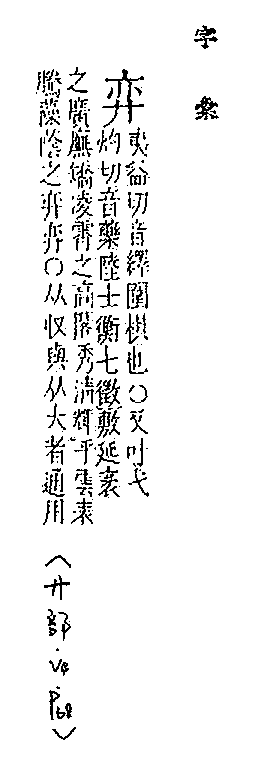 字彙
弈 夷益切音繹圍棋也○又叶弋
灼切音藥陸士衡七徵敷延袤
之廣廡矯凌霄之高閣秀清輝乎雲表
騰藻蔭之弈弈○从収與从大者通用
〈廾部.V4 P68〉